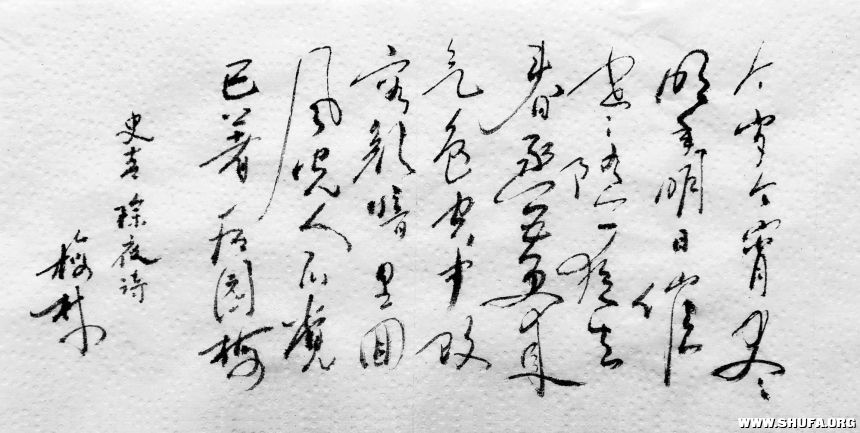 今岁今宵尽
明年明日催
寒随一夜去
春逐五更来
气色空中改
容颜暗里回
风光人不觉
已著后园梅
史青除夜诗
梅
WWW.SHUFA.ORG